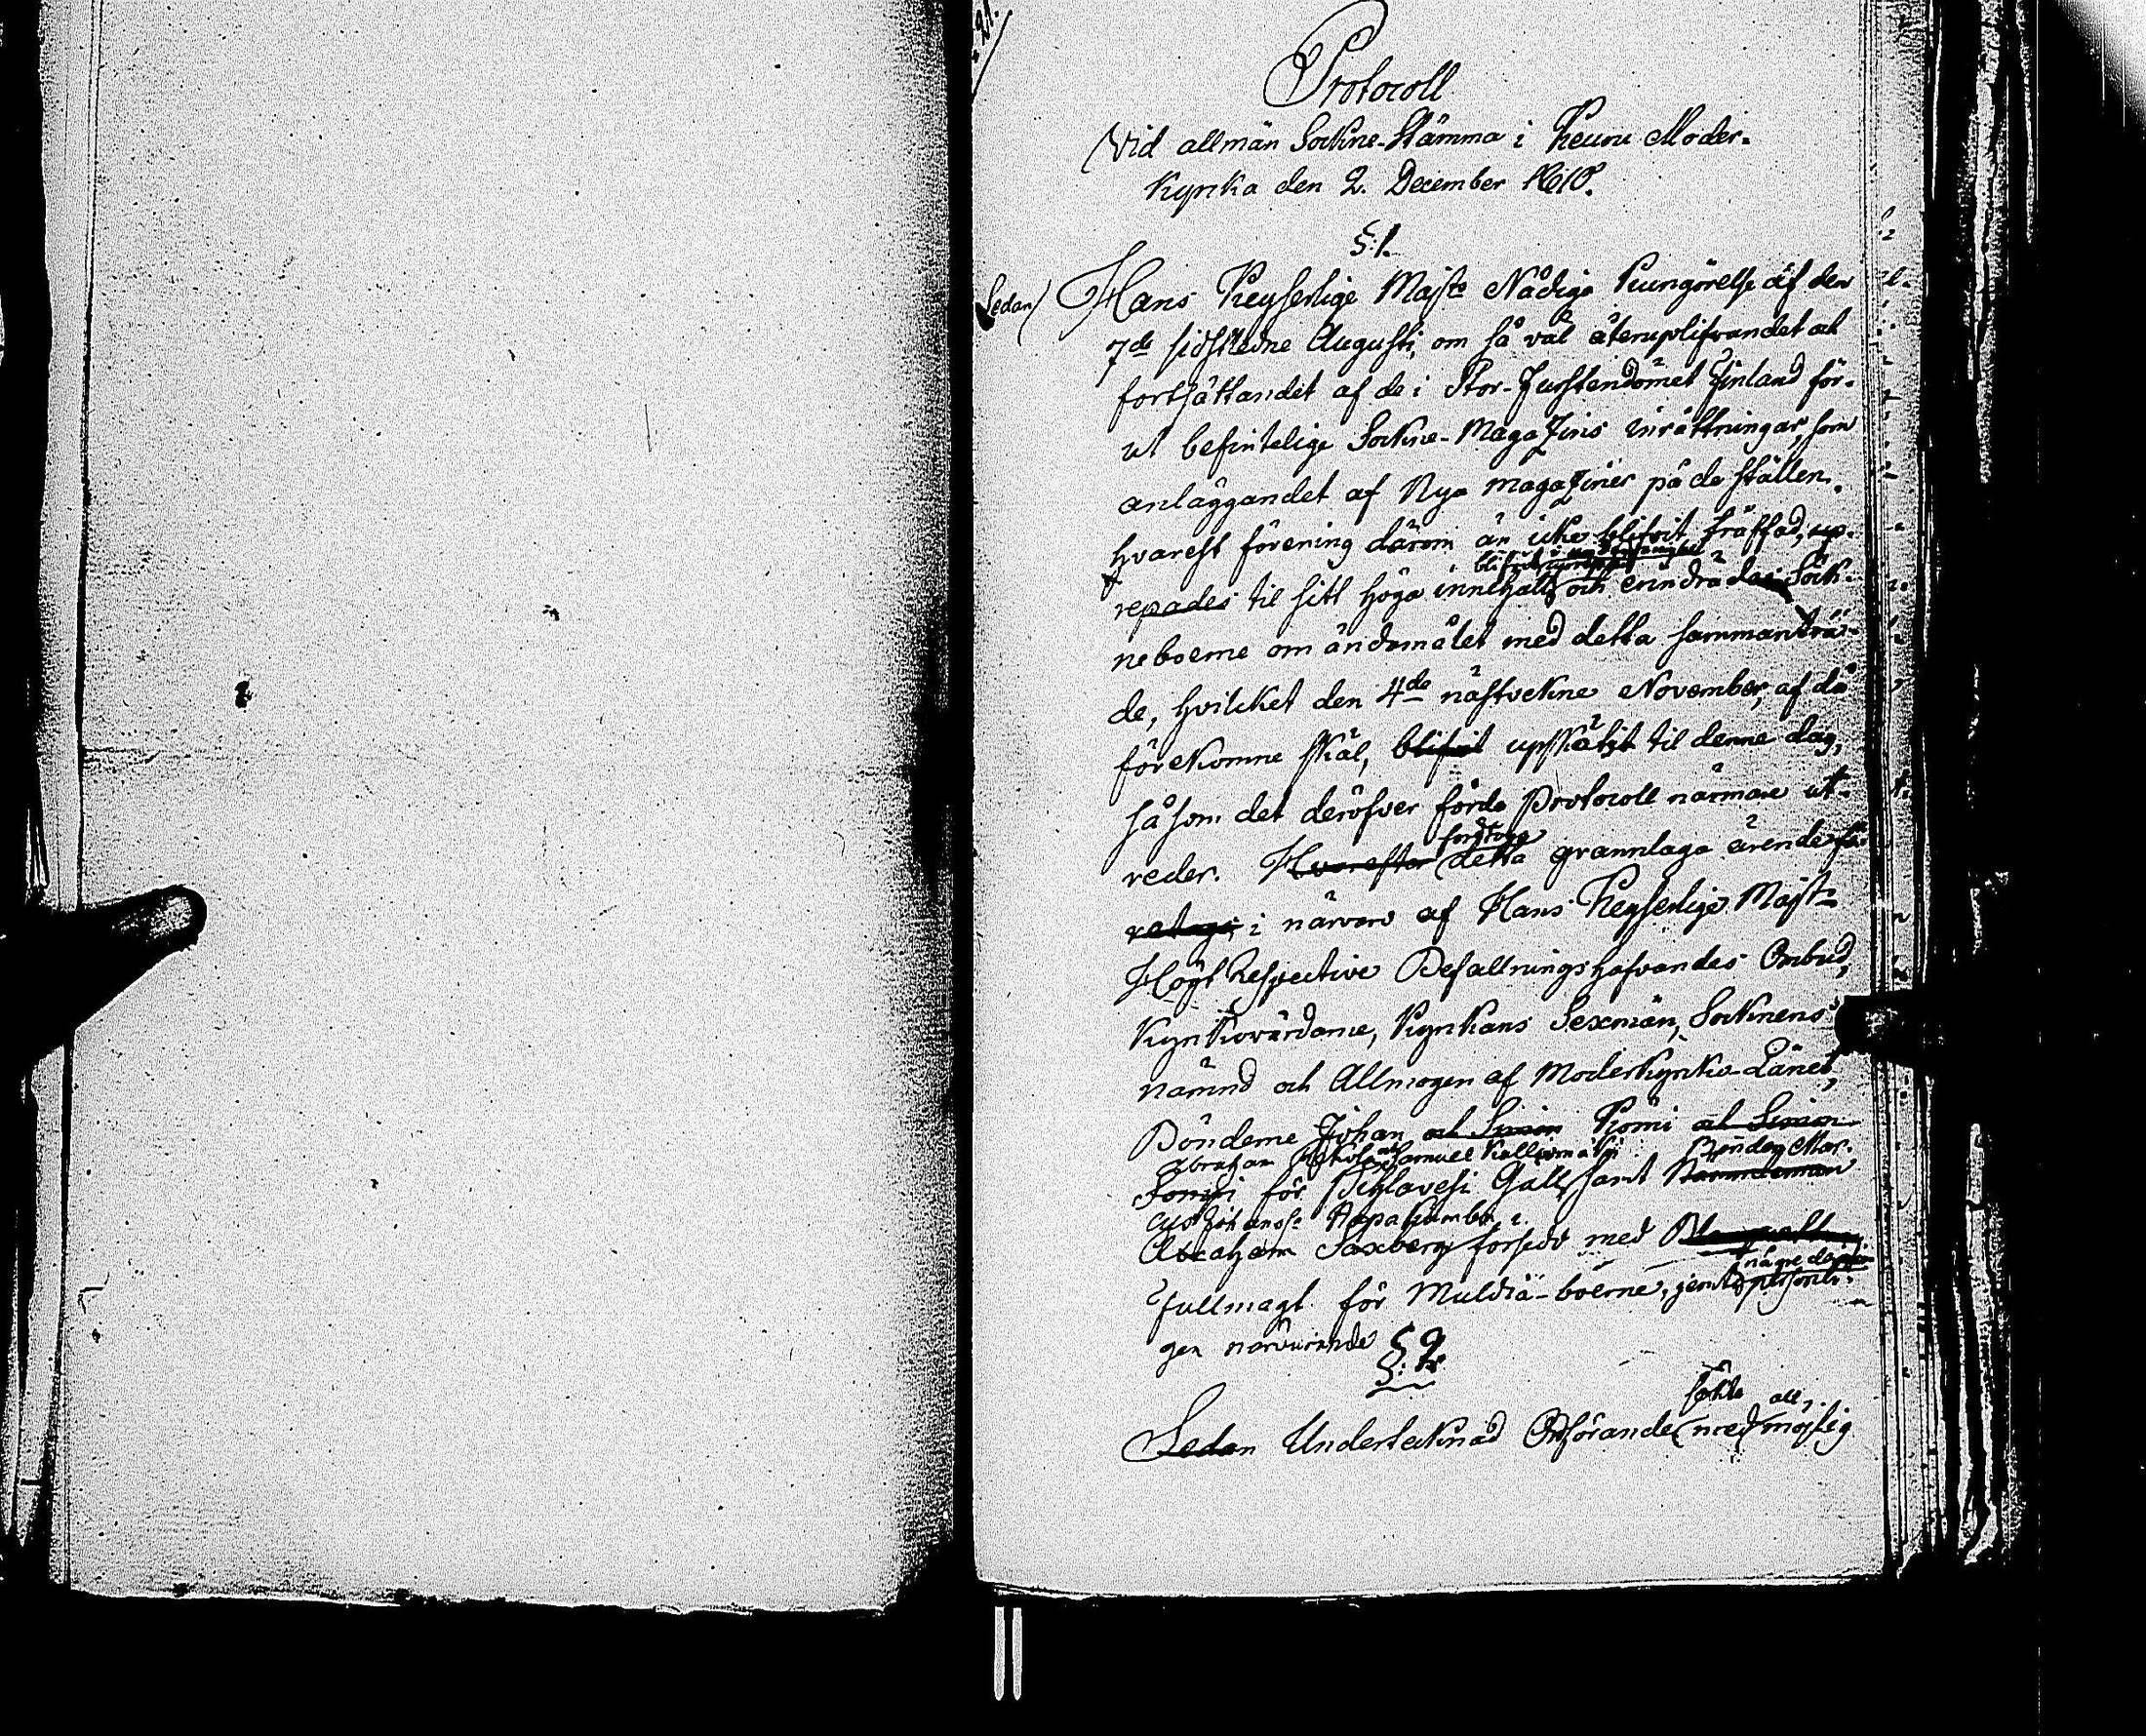 Protocoll
Vid allmän Sockne-Stämma i Keuru Moder-
kyrka den 2. December 1810.
§:1.
Sedan) Hans Keyserlige Majts Nådige Kungörelse af den
7de sidstledne Augusti, om så väl återuplifvandet och
fortsättandet af de i Stor-Furstendömet Finland för-
ut befintelige Sockne-Magazins inrättningar, som
anläggandet af Nya Magaziner på de ställen,
hvarest förening därom än icke blifvit träffad, up-
blifvit
repades til sitt höga innehåll och erindrades Sock-
neboerne om ändamålet med detta sammanträ-
de, hvilcket den 4de nästvekne November, af då
förekomne skäl, blifvit upskätzt til denne dag,
såsom det deröfver förde Protocoll närmare ut-
företogs
reder. Hvarefter detta grannlaga ärende fö-
retogs i närvaro af Hans Keyserlige Majts
Högt Respective Befallningshafvandes Ombud,
Kyrkovärdarne, Kyrkans Sexmän, Socknens
nämnd och Allmogen af Moderkyrko-Länet,
Bönderne Johan och Simon Kömi och Simon
Abraham och Samuel Bonden Mar-
för Pihlavesi Gäll, samt Nämndeman
cus Johanss.
Abraham Saxberg försedd med
några
Fullmagt för Muldiä-boerne, jemte personli-
gen närvarande
§:2.
sökte all
Sedan Undertecknad Ordförande med möjlig